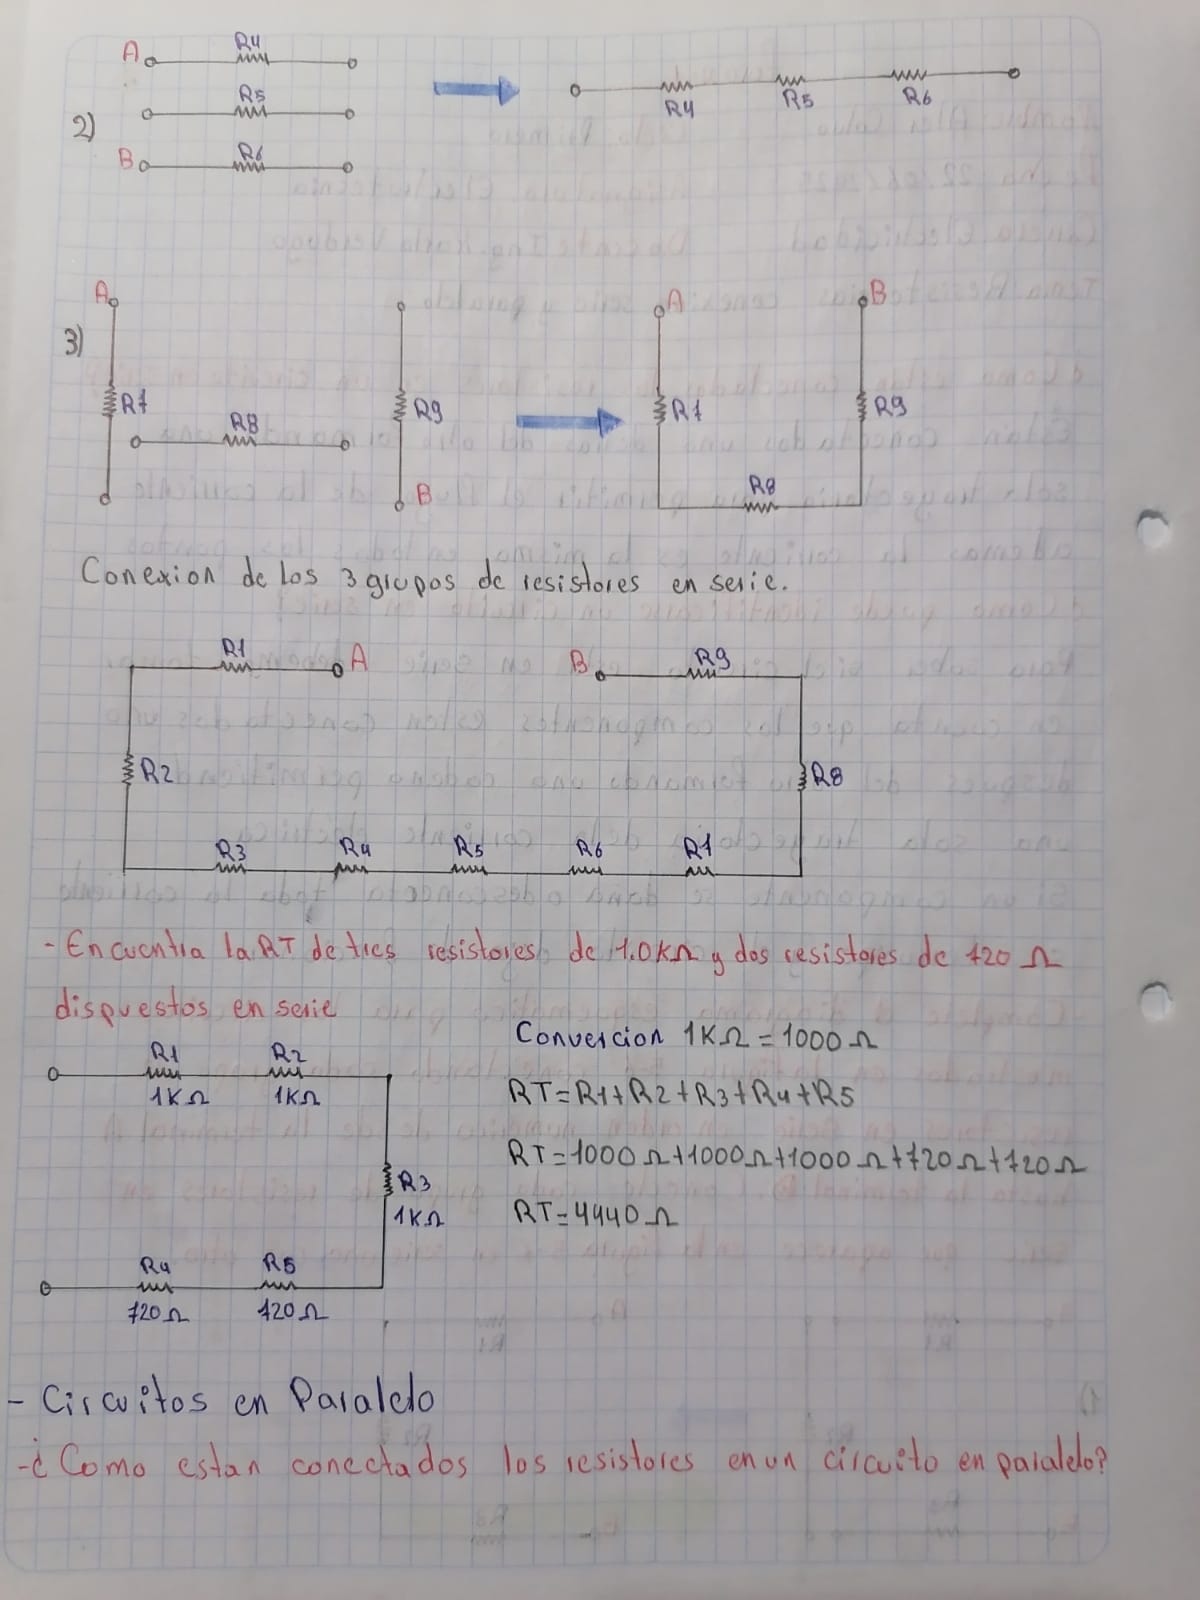 A R4
R5
2)
B R6
R4 R5 R6
A
3)
R7
R8
R9
B
A B
R7 R9
R8
Conexion de los 3 grupos de resistores en serie.
R1 A B R9
R2 R8
R3 R4 R5 R6 R7
- Encuentra la RT de tres resistores de 1.0KΩ y dos resistores de 720 Ω
dispuestos en serie
Convercion 1KΩ = 1000Ω
R1 R2
1KΩ 1KΩ
RT=R1+R2+R3+R4+R5
RT=1000Ω+1000Ω+1000Ω+720Ω+720Ω
R3
1KΩ
RT=4440Ω
R4 R5
720Ω 720Ω
- Circuitos en Paralelo
-¿Como estan conectados los resistores en un circuito en paralelo?